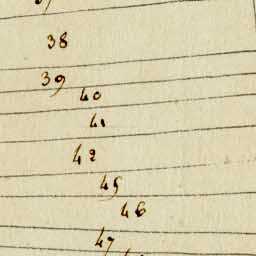 38
39
40
41
42
45
46
47